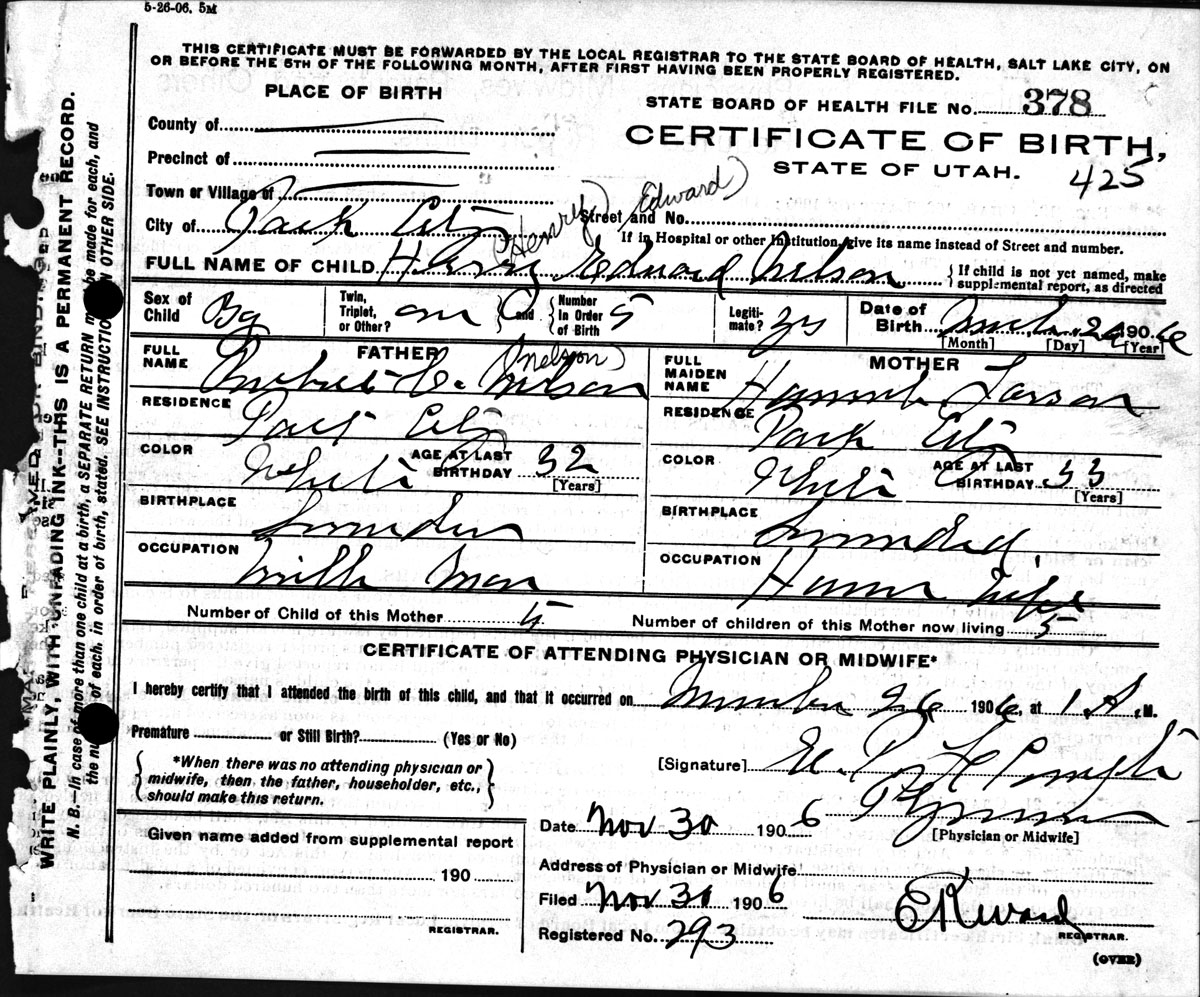 5-26-06. 5M
THIS CERTIFICATE MUST BE FORWARDED BY THE LOCAL REGISTRAR TO THE STATE BOARD OF HEALTH, SALT LAKE CITY, ON
OR BEFORE THE 5TH OF THE FOLLOWING MONTH, AFTER FIRST HAVING BEEN PROPERLY REGISTERED.
PLACE OF BIRTH
STATE BOARD OF HEALTH FILE No. 378
County of
CERTIFICATE OF BIRTH,
Precinct of
STATE OF UTAH. 425
Town or Village of
(Henry Edward)
City of Park City Street and No.
If in Hospital or other Institution, give its name instead of Street and number.
FULL NAME OF CHILD Harry Edward Nelson } If child is not yet named, make supplemental report, as directed
Sex of Child Boy Twin, Triplet, or Other? one { and } Number In Order of Birth 5 Legiti-mate? yes Date of Birth 26 1906
[Month] [Day] [Year]
FATHER
MOTHER
(nelson)
FULL NAME C. Nelson
FULL MAIDEN NAME Hannah Larson
RESIDENCE Park City
RESIDENCE Park City
COLOR White AGE AT LAST BIRTHDAY 32 [Years]
COLOR White AGE AT LAST BIRTHDAY 33 [Years]
BIRTHPLACE Sweden
BIRTHPLACE Sweden
OCCUPATION Mill Man
OCCUPATION House Wife
Number of Child of this Mother 5 Number of children of this Mother now living 5
CERTIFICATE OF ATTENDING PHYSICIAN OR MIDWIFE*
I hereby certify that I attended the birth of this child, and that it occurred on November 26 1906 at 1 A. M.
Premature or Still Birth? (Yes or No)
{ *When there was no attending physician or
midwife, then the father, householder, etc.,
should make this return. }
[Signature] E. P.
Date Nov 30 1906
[Physician or Midwife]
Given name added from supplemental report
190
REGISTRAR.
Address of Physician or Midwife
Filed Nov 30 1906
Registered No. 293
REGISTRAR.
(OVER)
WRITE PLAINLY, WITH UNFADING INK--THIS IS A PERMANENT RECORD.
N. B.—In case of more than one child at a birth, a SEPARATE RETURN be made for each, and
the of each, in order of birth, stated. SEE INSTRUCTIO ON OTHER SIDE.